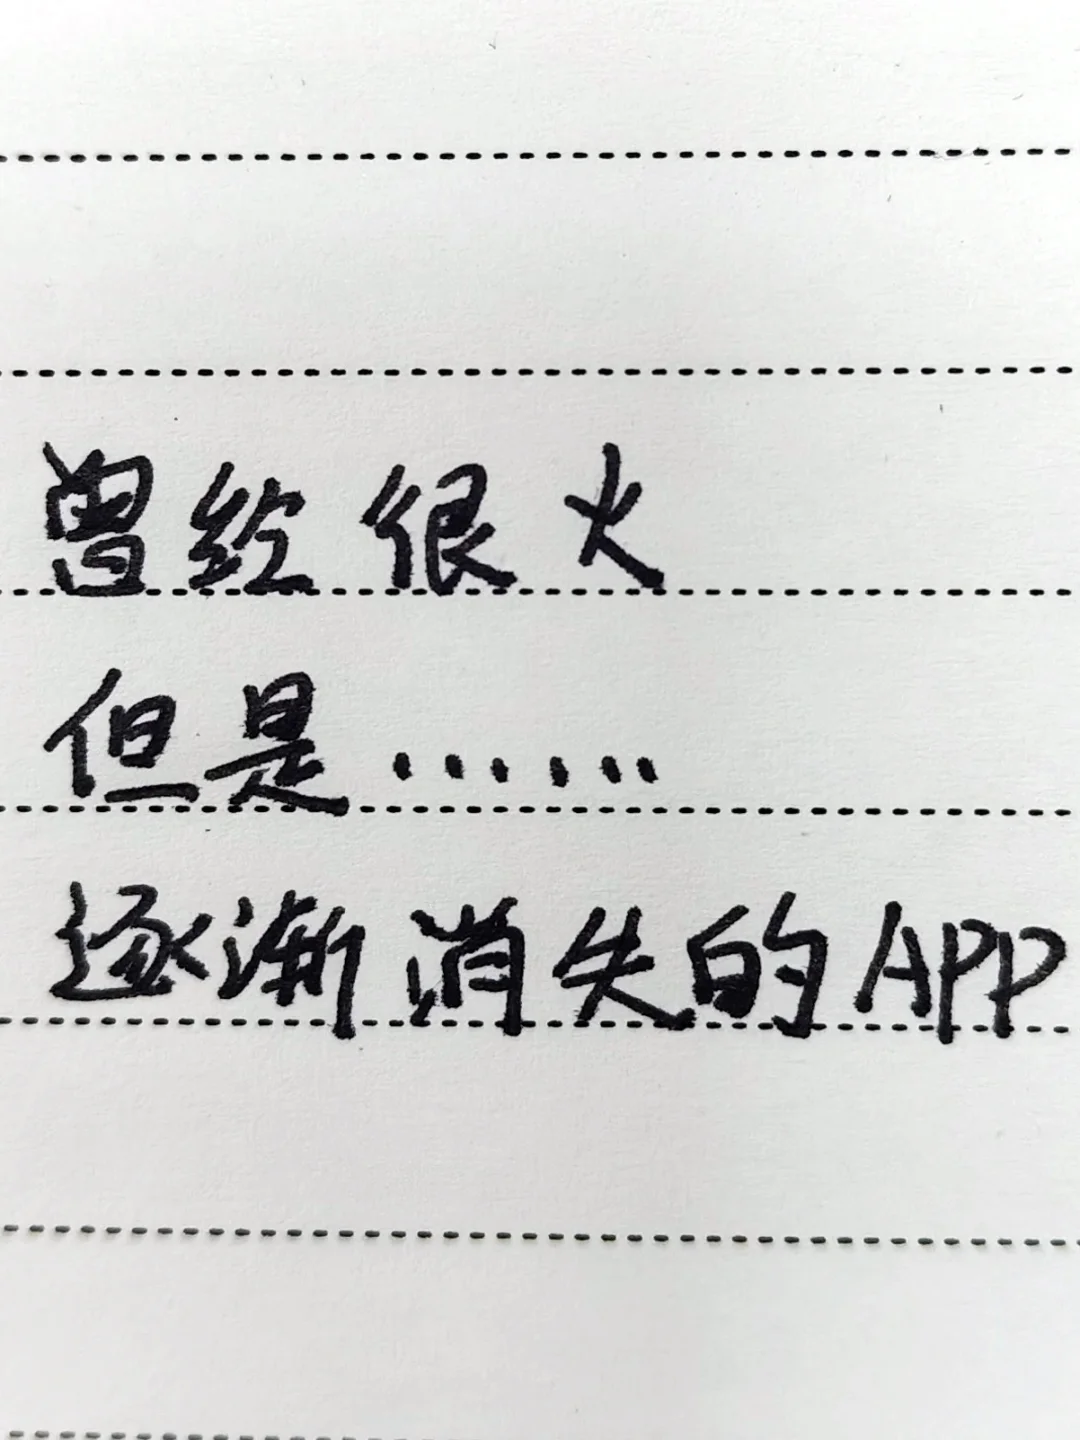 曾经很火
但是……
逐渐消失的APP